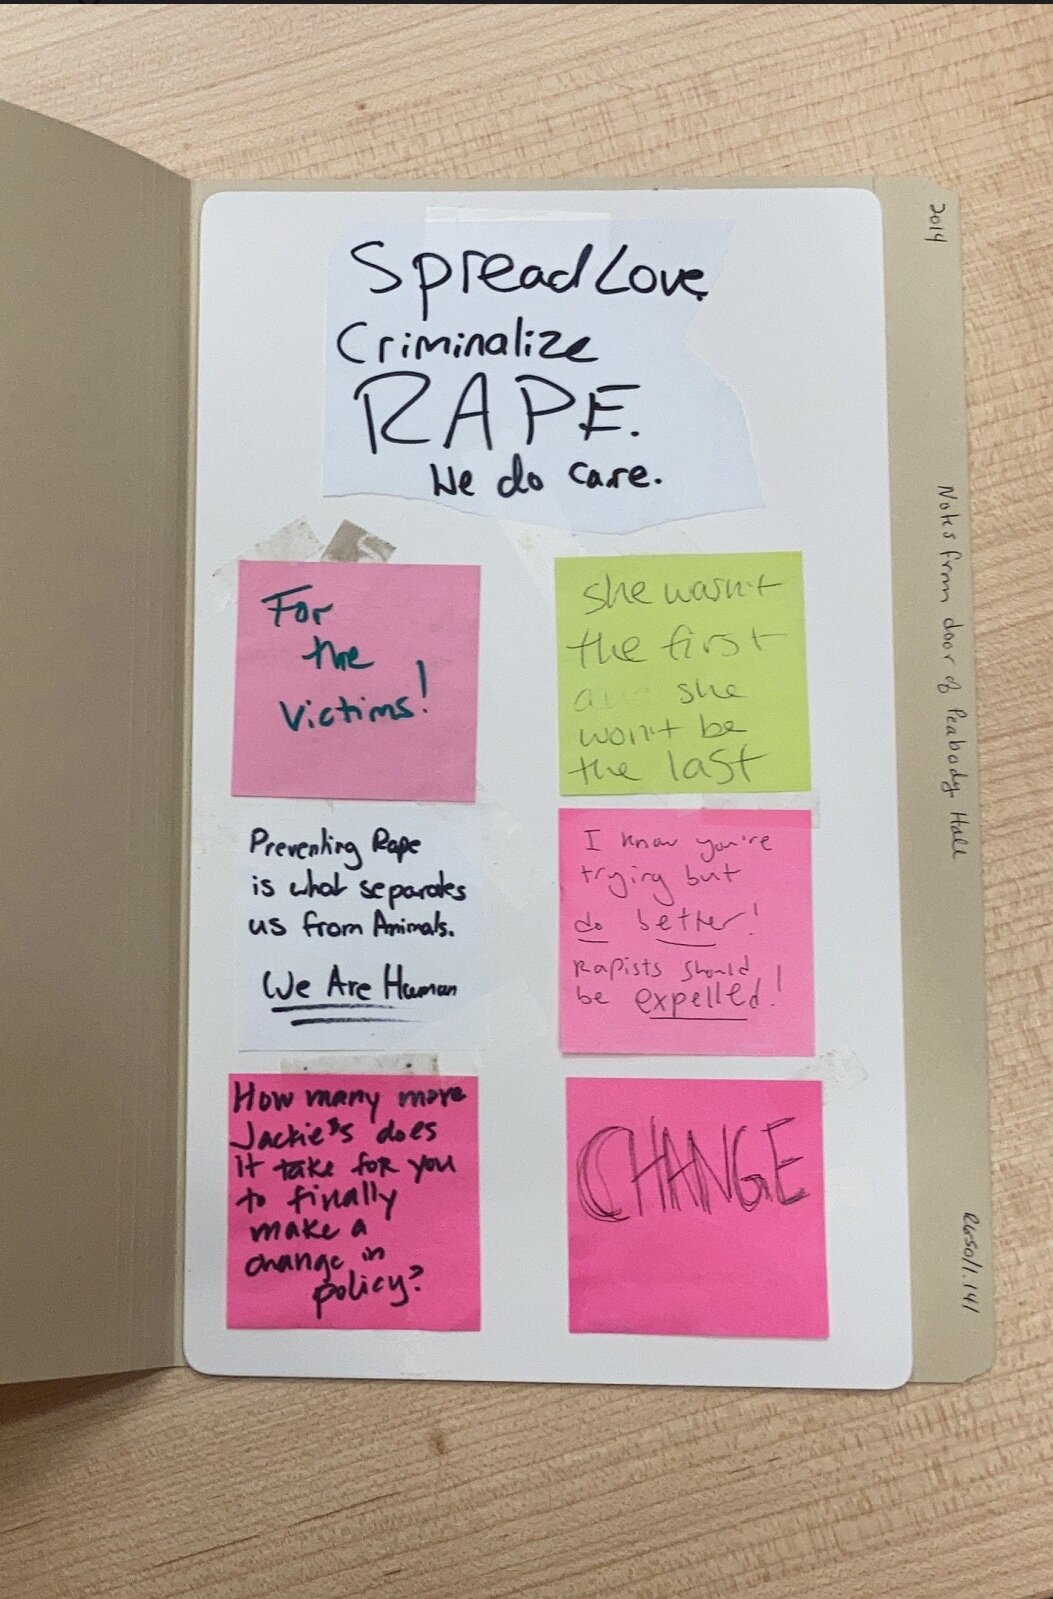 Spread Love.
Criminalize
RAPE.
We do care.
For
the
victims!
she wasn't
the first
and she
won't be
the last
Preventing Rape
is what separates
us from Animals.
We Are Human
I know you're
trying but
do better!
Rapists should
be expelled!
How many more
Jackie's does
it take for you
to finally
make a
change in
policy?
CHANGE
2014
Notes from door of Peabody Hall
RG50/1.141